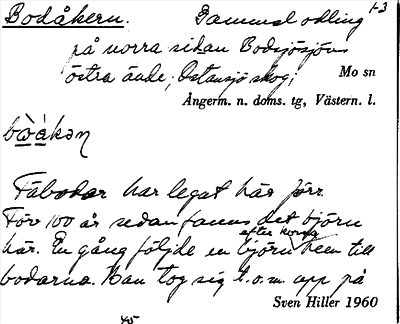 Bodåkern. Gammal odling 1-3
på norra sidan Bodsjösjöns
östra ände; Östansjö skog; Mo sn
Ångerm. n. doms. tg, Västern. l.
Fäbodar har legat här förr.
För 100 år sedan fanns det björn
här. En gång följde en björn efter korna hem till
bodarna. Han tog sig t.o.m. upp på
Sven Hiller 1960
45